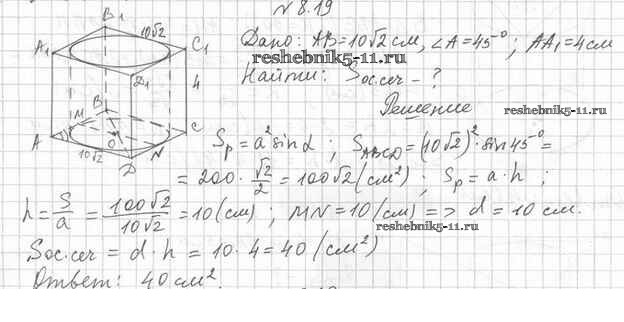 № 8.19
B₁ 10√2
A₁ C₁ Дано: AB=10√2 см, ∠A=45°; AA₁=4см
reshebnik5-11.ru
D₁ 4 Найти: Sос.сеч – ?
M B Решение
reshebnik5-11.ru
A O C Sр = a² sin α ; S_ABCD = (10√2)² · sin 45° =
10√2 D N
= 200 · √2/2 = 100√2 (см²) ; Sр = a · h ;
h = S/a = 100√2/10√2 = 10 (см) ; MN = 10 (см) => d = 10 см.
reshebnik5-11.ru
Sос.сеч = d · h = 10 · 4 = 40 (см²)
Ответ: 40 см².